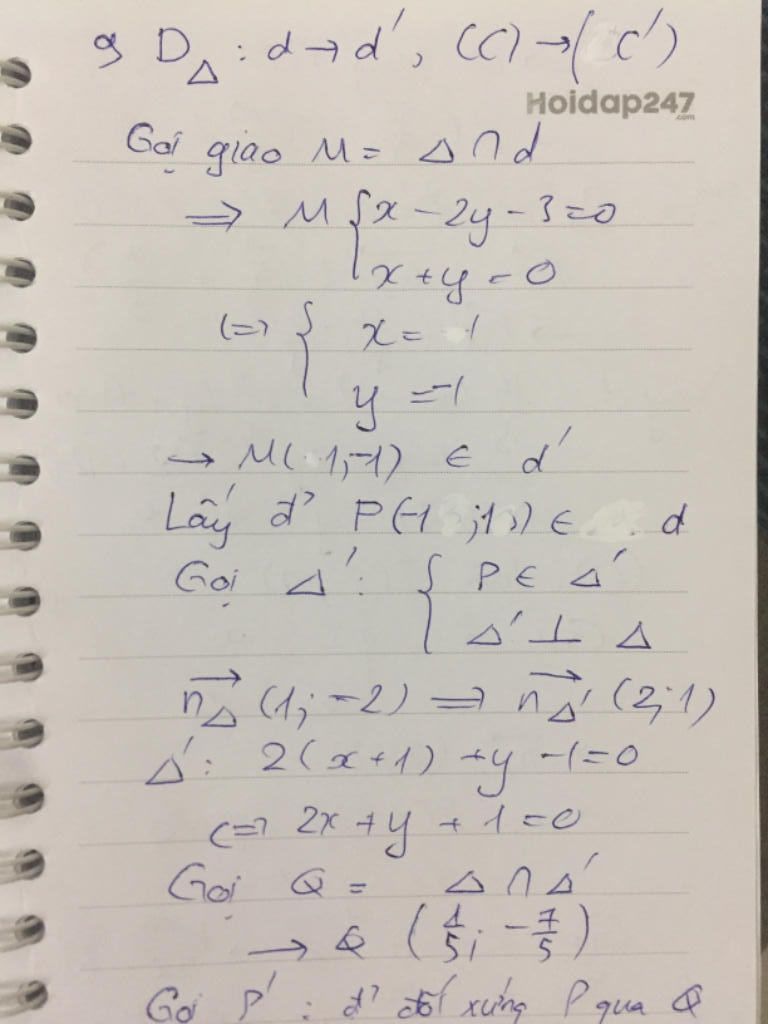 D_Δ : d → d', (C) → (C')
Hoidap247
.com
Gọi giao M = Δ ∩ d
⇒ M { x - 2y - 3 = 0
x + y = 0
⇔ { x = 1
y = -1
→ M(1;-1) ∈ d'
Lấy đ' P(-1;1) ∈ d
Gọi Δ': { P ∈ Δ'
Δ' ⊥ Δ
n_Δ→ (1; -2) ⇒ n_Δ'→ (2;1)
Δ': 2(x+1) + y - 1 = 0
⇔ 2x + y + 1 = 0
Gọi Q = Δ ∩ Δ'
→ Q (1/5; -7/5)
Gọi P' : đ' đối xứng P qua Q